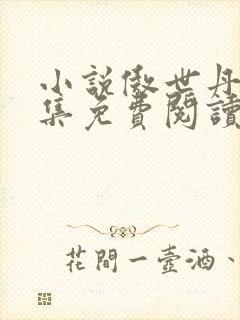 小說傲世丹
集免費閱讀
花間一壺酒、